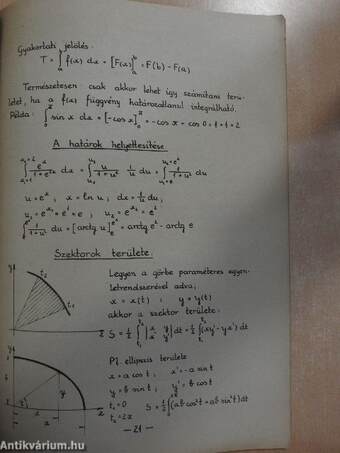 Gyakorlati jelölés:
T = ∫_a^b f(x) dx = [F(x)]_a^b = F(b) - F(a)
Természetesen csak akkor lehet így számítani terü-
letet, ha a f(x) függvény határozatlanul integrálható.
Példa: ∫_0^π sin x dx = [-cos x]_0^π = -cos π - cos 0 = 1 + 1 = 2
A határok helyettesítése
∫_{x₁=1}^{x₂=2} e^x / (1+e^{2x}) dx = ∫_{u₁}^{u₂} u / (1+u²) · 1/u du = ∫_{u₁=e}^{u₂=e²} 1 / (1+u²) du
u = e^x ; x = ln u ; dx = 1/u du ;
u₁ = e^{x₁} = e¹ = e ; u₂ = e^{x₂} = e² ;
∫_e^{e²} 1 / (1+u²) du = [arctg u]_e^{e²} = arctg e² - arctg e
Szektorok területe:
Legyen a görbe paraméteres egyen-
letrendszerével adva;
x = x(t) ; y = y(t)
akkor a szektor területe:
S = 1/2 ∫_{t₁}^{t₂} |x y x' y'| dt = 1/2 ∫_{t₁}^{t₂} (xy' - yx') dt
Pl. ellipszis területe
x = a cos t ; x' = -a sin t
y = b sin t ; y' = b cos t
t₁ = 0
t₂ = 2π
S = 1/2 ∫ (ab cos² t + ab sin² t) dt
y
t₂
t₁
x
y
t
y
x
x
- 21 -
Antikvárium.hu